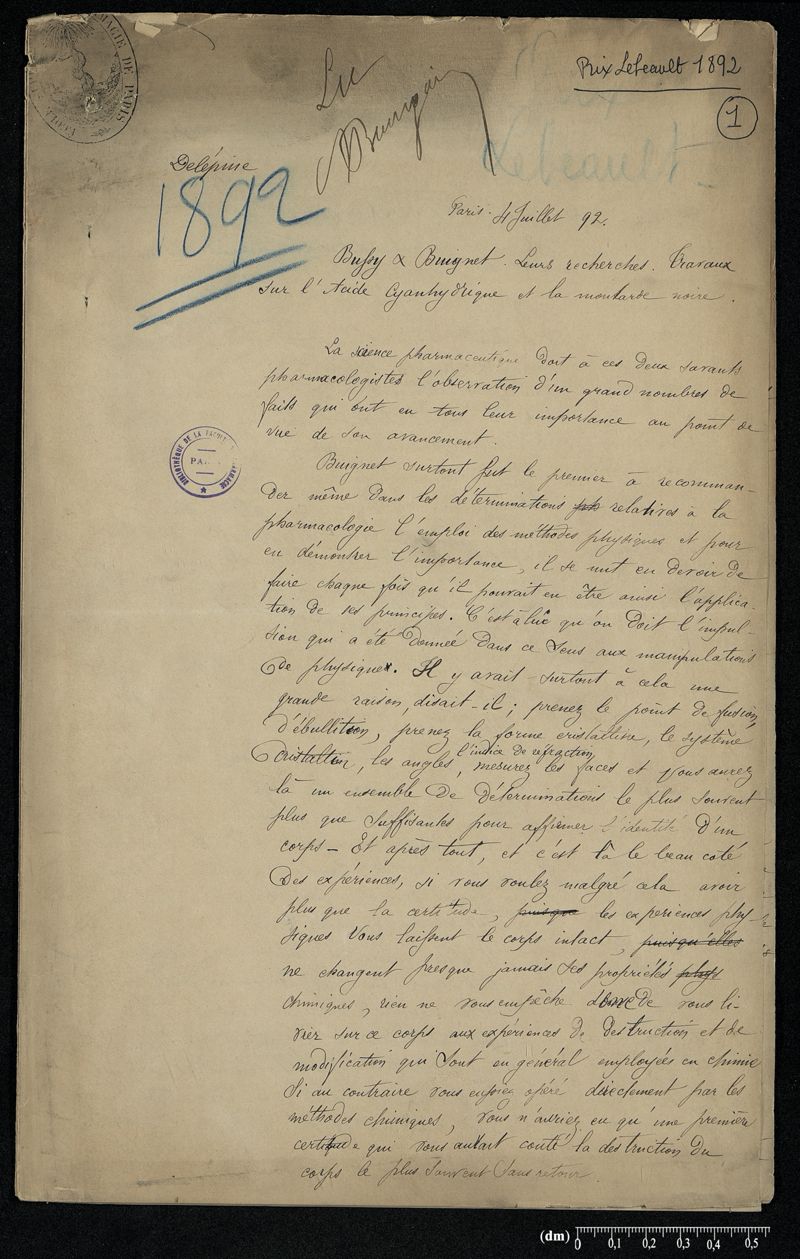 Prix Lebeault 1892
1
Lu
Bourgoin
Lebeault
Delépine
1892
Paris. 4 Juillet 92.
Bussy & Buignet. Leurs recherches. Travaux
sur l'Acide Cyanhydrique et la moutarde noire.
La science pharmaceutique doit à ces deux savants
pharmacologistes l'observation d'un grand nombres de
faits qui ont eu tous leur importance au point de
vue de son avancement.
Buignet surtout fut le premier à recomman-
der même dans les déterminations ph relatives à la
pharmacologie l'emploi des méthodes physiques et pour
en démontrer l'importance, il se mit en devoir de
faire chaque fois qu'il pouvait en être ainsi l'applica-
tion de ses principes. C'est à lui qu'on doit l'impul-
sion qui a été donnée dans ce sens aux manipulations
de physique. Il y avait surtout à cela une
grande raison, disait-il ; prenez le point de fusion,
d'ébullition, prenez la forme cristalline, le système
l'indice de réfraction
cristallin, les angles, mesurez les faces et vous aurez
là un ensemble de déterminations le plus souvent
plus que suffisantes pour affirmer l'identité d'un
corps - Et après tout, et c'est là le beau coté
des expériences, si vous voulez malgré cela avoir
plus que la certitude, puisque les expériences phy-
siques vous laissent le corps intact, puisqu'elles
ne changent presque jamais ses propriétés phys
chimiques, rien ne vous empêche donc de vous li-
vrer sur ce corps aux expériences de destruction et de
modification qui sont en général employés en chimie
Si au contraire vous eussiez opéré directement par les
méthodes chimiques, vous n'auriez eu qu'une première
certitude qui vous aurait couté la destruction du
corps le plus souvent sans retour.
BIBLIOTHÈQUE DE LA FACULTÉ
PARIS
PHARMACIE DE PARIS
ÉCOLE
(dm) 0 0,1 0,2 0,3 0,4 0,5